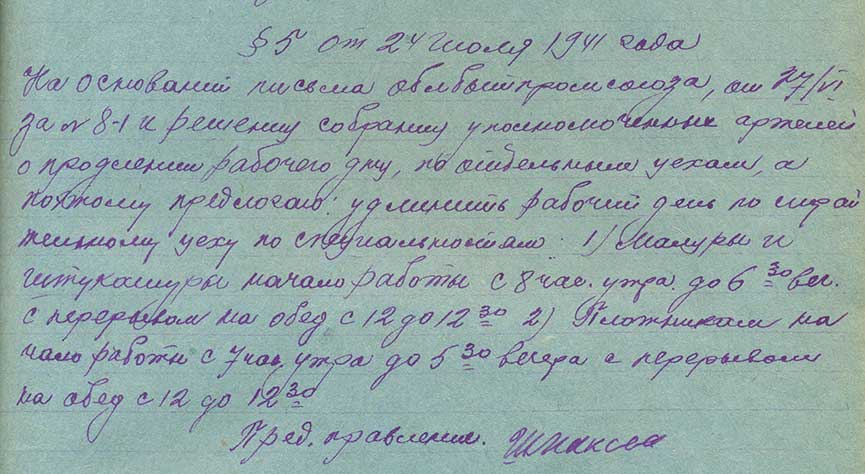 § 5 от 24 июля 1941 года
На основании письма облбытпромсоюза, от 27/VI
за № 8-1 и решению собранию уполномоченных артелей
о продлении рабочего дню, по отдельным цехам, а
потому предлогаю: удлинить рабочий день по строй
тельному цеху по специальностям: 1) Маляры и
штукатуры начало работы с 8 час. утра. до 6 30 веч.
с перерывом на обед с 12 до 12 30 2) Плотникам на
чало работы с 7 час. утра до 5 30 вечера с перерывом
на обед с 12 до 12 30
Пред. правления.